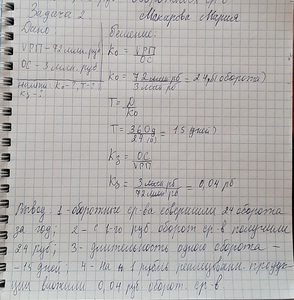 Задача 2 Макарова Мария
Дано: Решение:
VРП - 72 млн. руб
ОС - 3 млн. руб
Ko = VРП / ОС
Ko = 72 млн рб / 3 млн рб = 24 рб (оборота)
Найти: Ko - ?, T - ?
Kз - ?
T = D / Ko
T = 360 д / 24 рб = 15 дней)
Kз = ОС / VРП
Kз = 3 млн рб / 72 млн рб = 0,04 рб
Вывод 1 - оборотные ср-ва совершили 24 оборота
за год; 2 - с 1-го руб оборот ср-в получили
24 руб; 3 - длительность одного оборота -
- 15 дней. 4 - На 1 рубль реализации продук-
ции вложили 0,04 руб оборот. ср-в